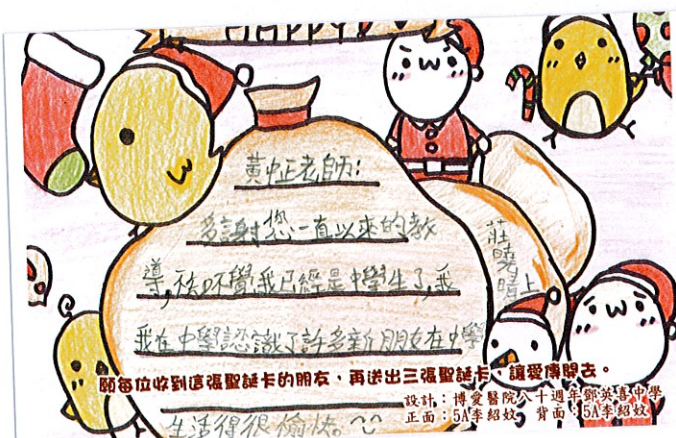 HAPPY
黃中正老師:
多謝您一直以來的教
導,不知不覺,我已經是中學生了,我
我在中學認識了許多新朋友在中學
生活得很愉快。
莊曉晴上
願每位收到這張聖誕卡的朋友,再送出三張聖誕卡,讓愛傳開去。
設計:博愛醫院八十週年鄧英喜中學
正面:5A李紹妏 背面:5A李紹妏